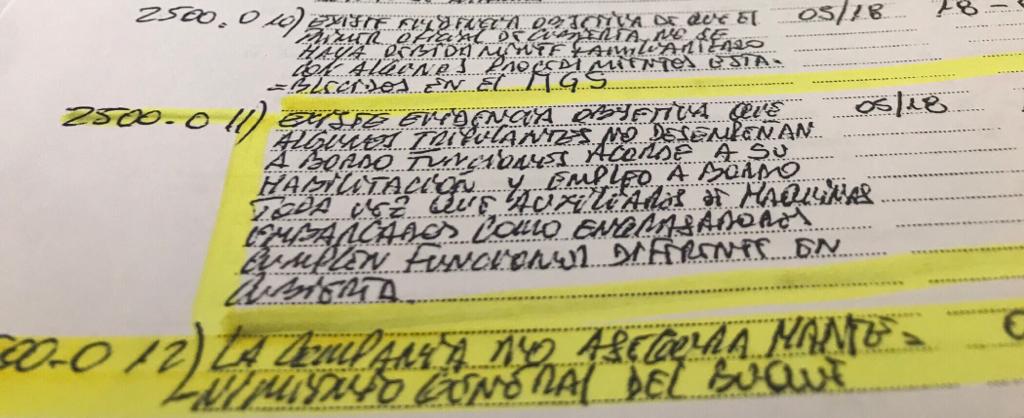 2500.0 10) EXISTE EVIDENCIA OBJETIVA DE QUE EL 05/18 18-
PRIMER OFICIAL DE CUBIERTA NO SE
HAYA DEBIDAMENTE FAMILIARIZADO
CON ALGUNOS PROCEDIMIENTOS ESTA-
=BLECIDOS EN EL MGS
2500.0 11) EXISTE EVIDENCIA OBJETIVA QUE 05/18
ALGUNOS TRIPULANTES NO DESEMPEÑAN
A BORDO FUNCIONES ACORDE A SU
HABILITACIÓN Y EMPLEO A BORDO
TODA VEZ QUE AUXILIARES DE MAQUINAS
EMBARCADOS COMO ENGRASADORES
CUMPLEN FUNCIONES DIFERENTE EN
CUBIERTA.
00-0 12) LA COMPAÑIA NO ASEGURA MANTE=
=NIMIENTO GENERAL DEL BUQUE